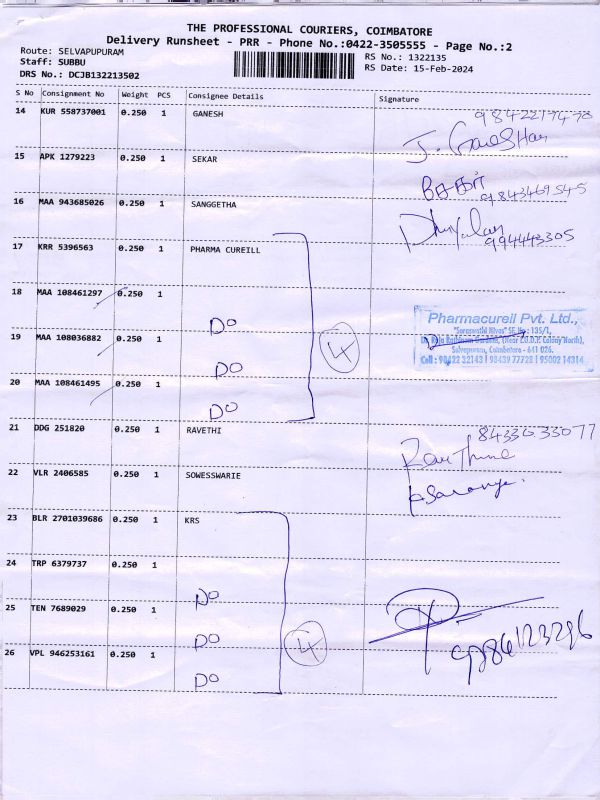 THE PROFESSIONAL COURIERS, COIMBATORE
Delivery Runsheet - PRR - Phone No.:0422-3505555 - Page No.:2
Route: SELVAPUPURAM
RS No.: 1322135
Staff: SUBBU
RS Date: 15-Feb-2024
DRS No.: DCJB132213502
S No Consignment No Weight PCS Consignee Details Signature
14 KUR 558737001 0.250 1 GANESH
15 APK 1279223 0.250 1 SEKAR
16 MAA 943685026 0.250 1 SANGGETHA
994443305
17 KRR 5396563 0.250 1 PHARMA CUREILL
18 MAA 108461297 0.250 1
DO
Pharmacureil Pvt. Ltd.,
19 MAA 108036882 0.250 1
4
Selvapuram, Coimbatore - 641 026.
DO
Cell : 98422 32143 | 98439 77728 | 95002 14314
20 MAA 108461495 0.250 1
DO
21 DDG 251820 0.250 1 RAVETHI
22 VLR 2406585 0.250 1 SOWESSWARIE
23 BLR 2701039686 0.250 1 KRS
24 TRP 6379737 0.250 1
DO
25 TEN 7689029 0.250 1
DO
4
26 VPL 946253161 0.250 1
DO